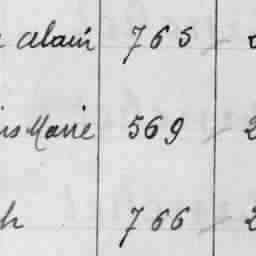 Alain 765
Marie 569 2
h 766 2